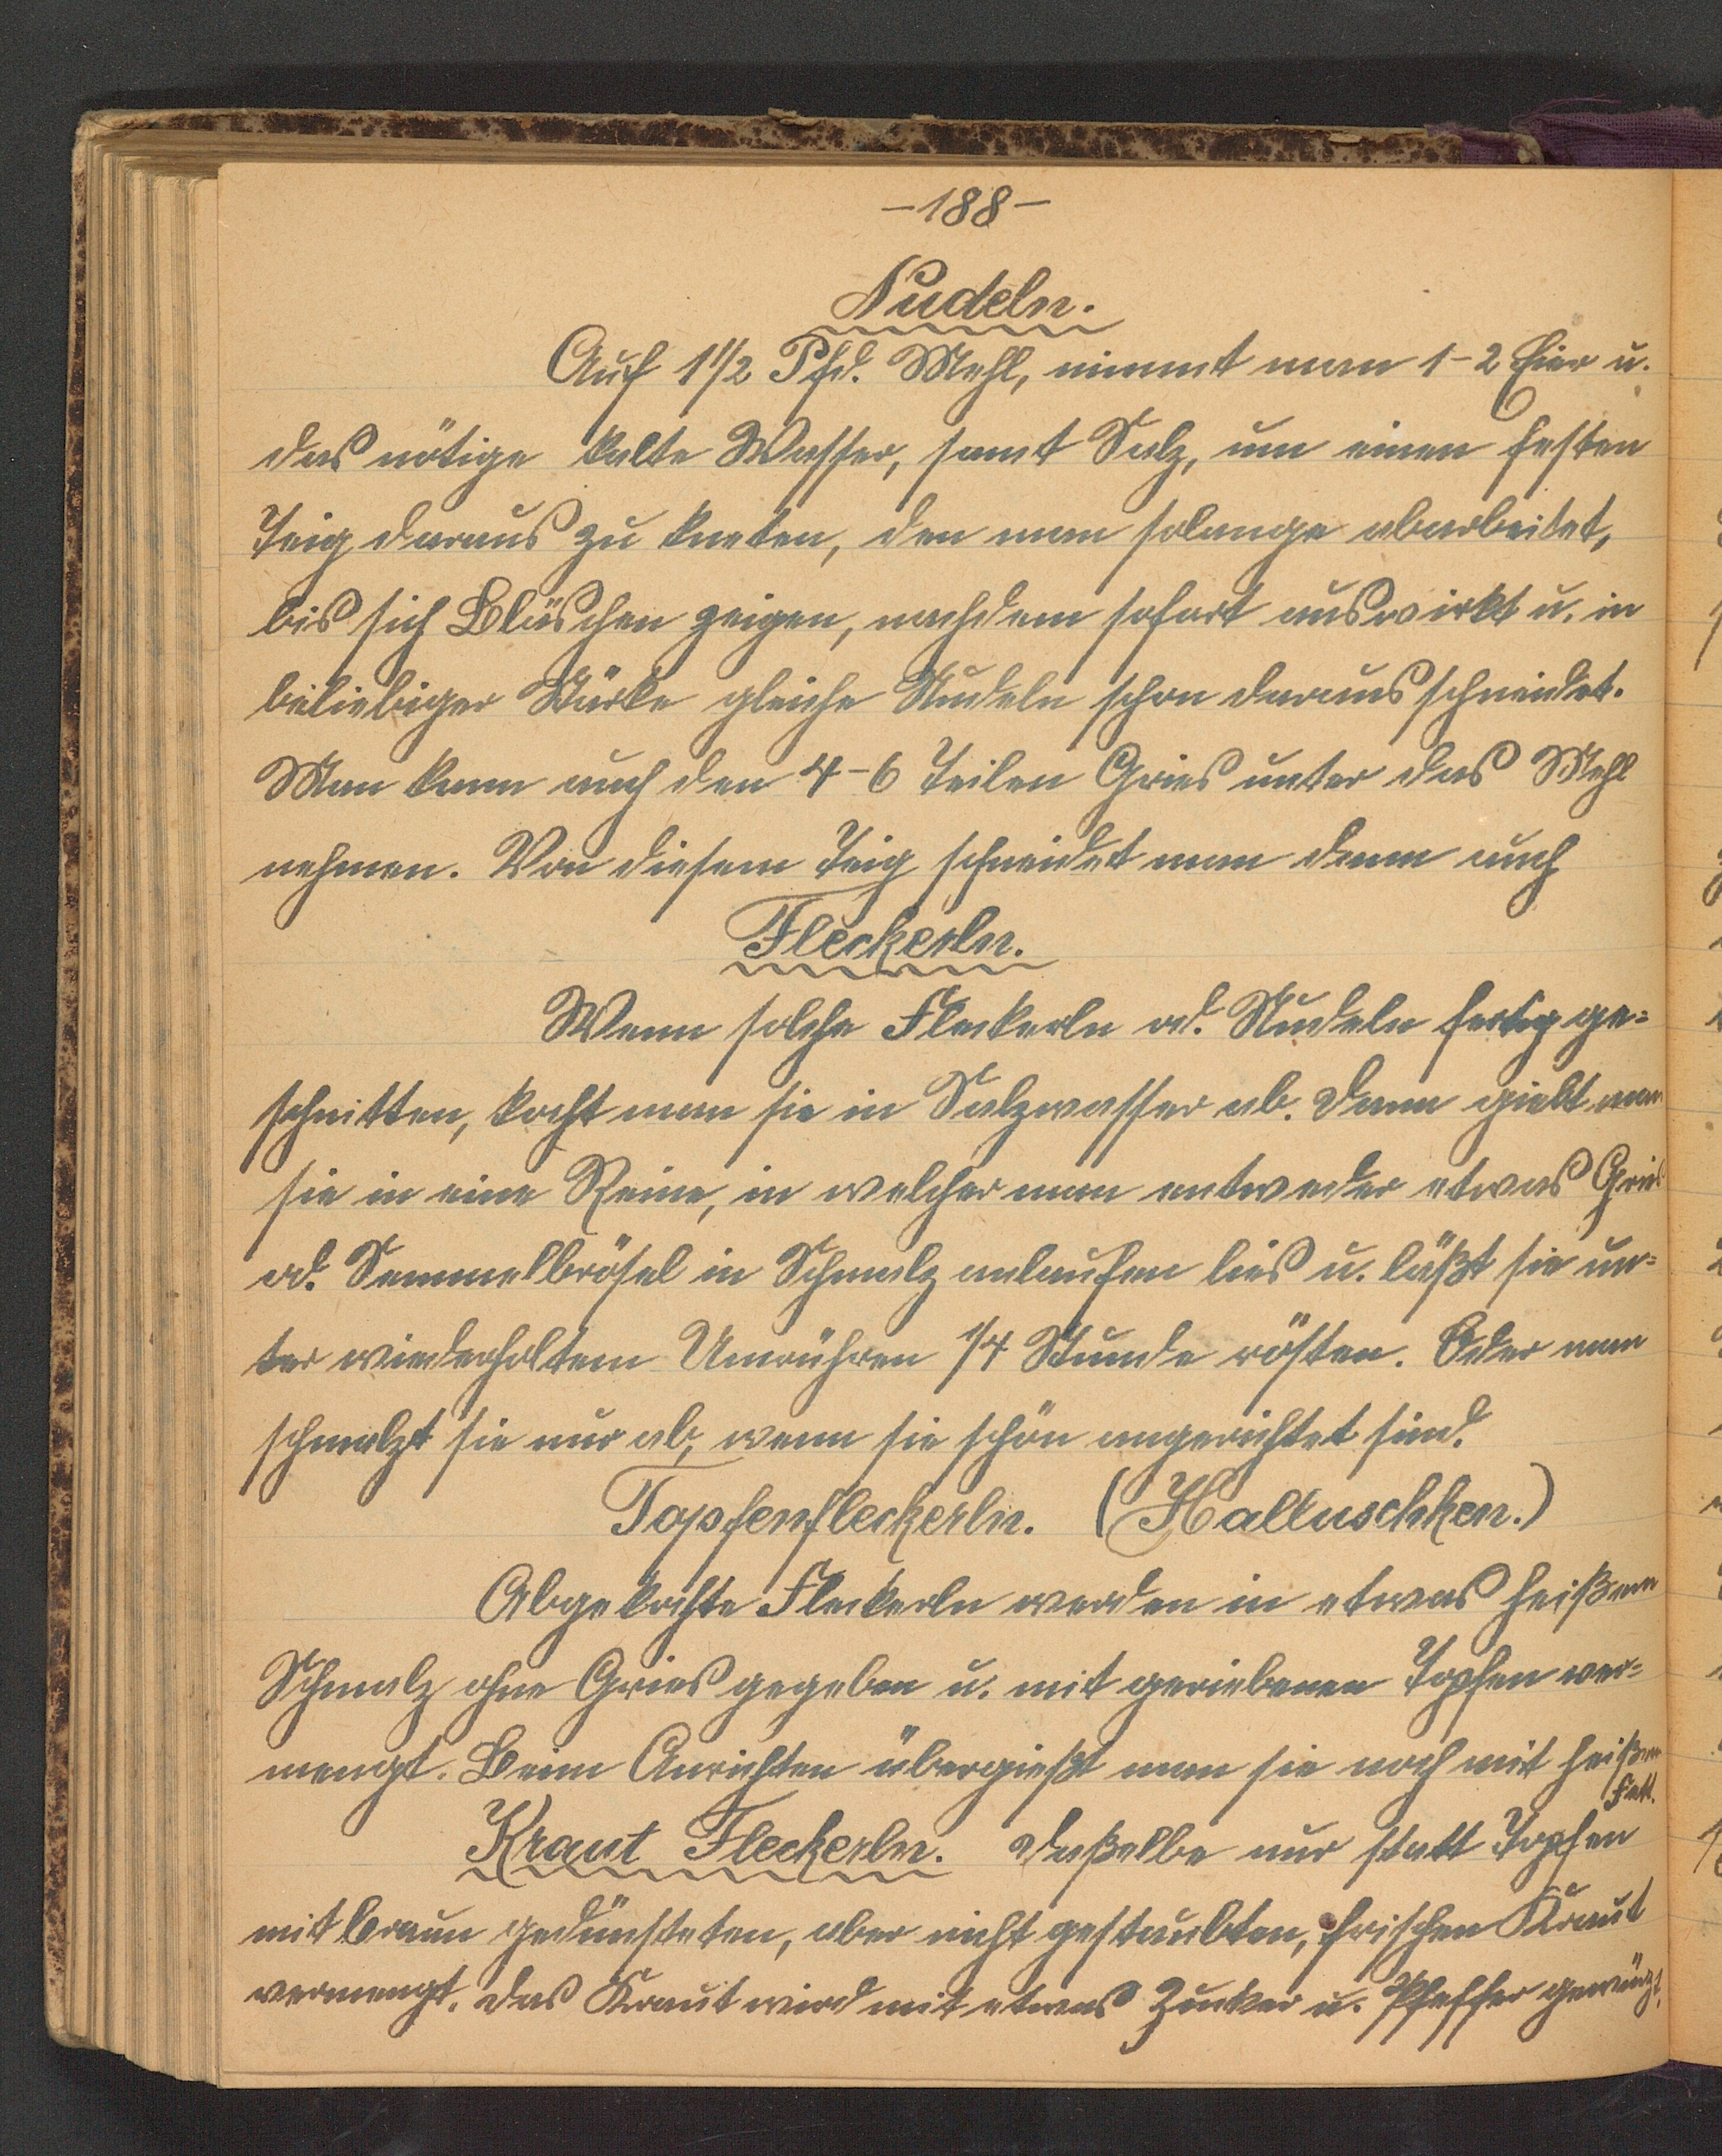 -188-
Nudeln.
Auf 1 1/2 Pfd. Mehl, nimmt man 1-2 Eier u.
das nötige kalte Wasser, samt Salz, um einen festen
Teig daraus zu kneten, den man solange abarbeitet,
bis sich Bläschen zeigen, nachdem sofort auswirkt u. in
beliebiger Stärke gleiche Nudeln schon daraus schneidet.
Man kann auch den 4-6 Teilen Gries unter das Mehl
nehmen. Von diesem Teig schneidet man dann auch
Fleckerln.
Wenn solche Fleckerln od. Nudeln fertig ge=
schnitten, kocht man sie in Salzwasser ab. Dann giebt man
sie in eine Reine, in welcher man entweder etwas Gries
od. Semmelbrösel in Schmalz anlaufen lies u. läßt sie un=
ter wiederholtem Umrühren 1/4 Stunde rösten. Oder man
schmalzt sie nur ab, wenn sie schön angerichtet sind.
Topfenfleckerln. (Halluschken.)
Abgekochte Fleckerln werden in etwas heißem
Schmalz ohne Gries gegeben u. mit geriebenen Topfen ver=
mengt. Beim Anrichten übergießt man sie noch mit heißem
Fett.
Kraut Fleckerln. Daßelbe nur statt Topfen
mit braun gedünsteten, aber nicht gestaubten, frischen Kraut
vermengt. Das Kraut wird mit etwas Zucker u. Pfeffer gewürzt.